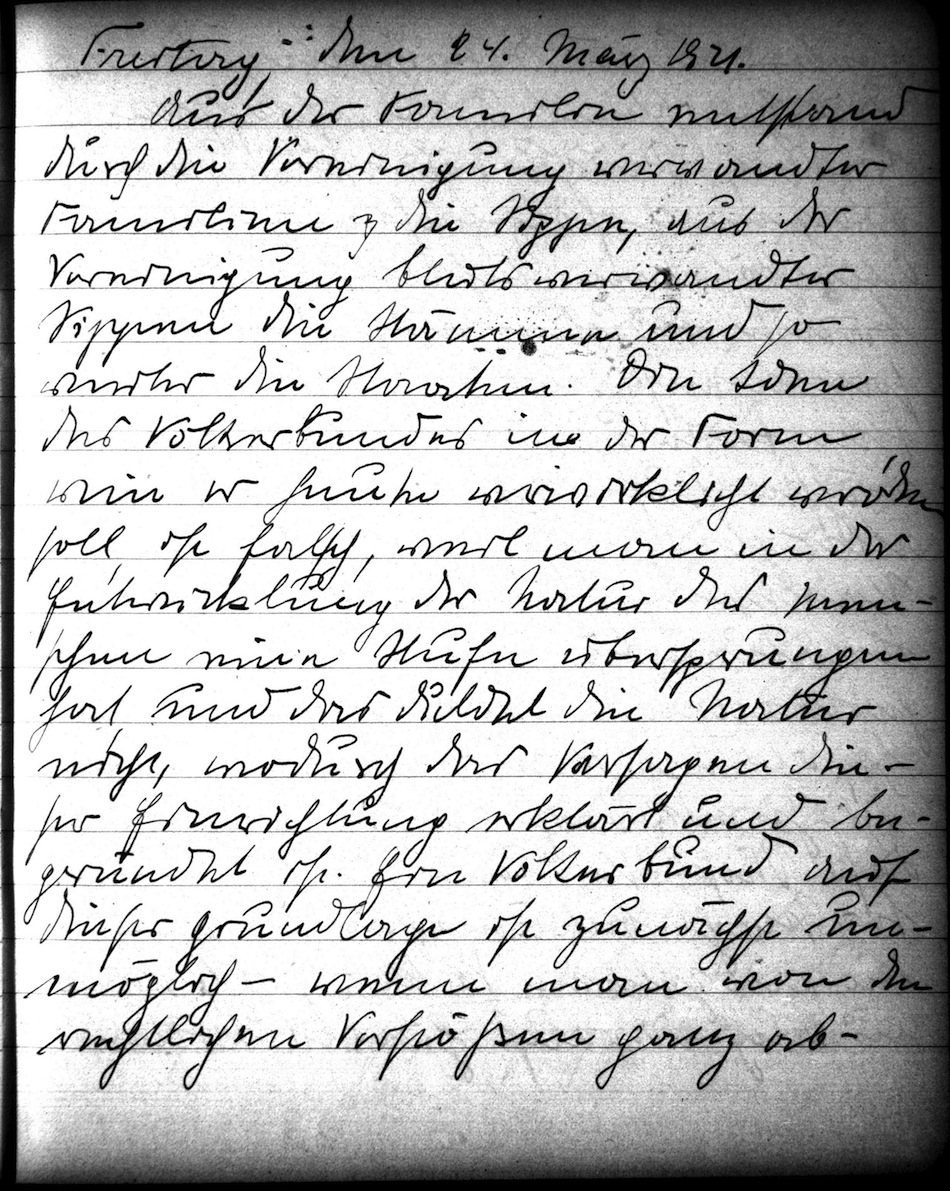 Freitag, den 24. März 1921.
Aus der Familie entstand
durch die Vereinigung verwandter
Familien die Sippe, aus der
Vereinigung blutsverwandter
Sippen die Stämme und so
weiter die Staaten. Die Idee
des Völkerbundes in der Form
wie er heute verwirklicht werden
soll, ist falsch, weil man in der
Entwicklung der Natur des Men-
schen eine Stufe übersprungen
hat und das duldet die Natur
nicht, wodurch das Versagen die-
ser Einrichtung erklärt und be-
gründet ist. Ein Völkerbund auf
dieser Grundlage ist zunächst un-
möglich – wenn man von den
rechtlichen Verstößen ganz ab-